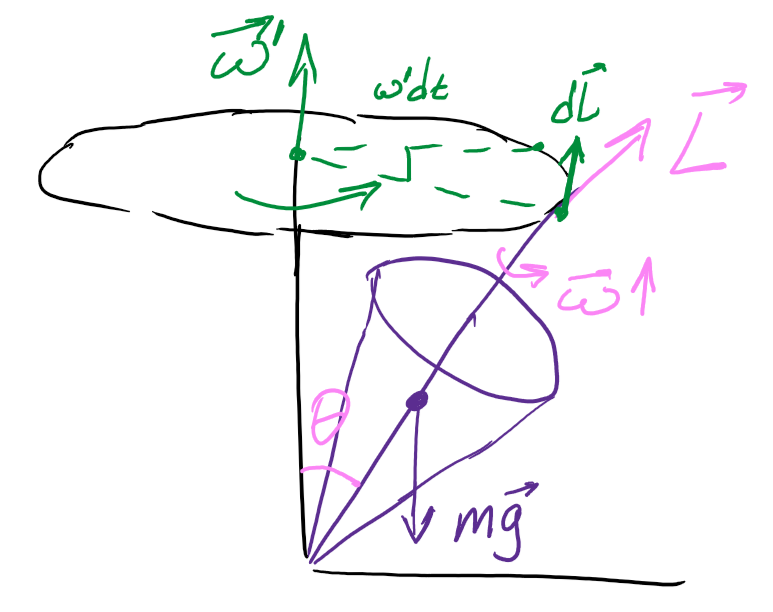 ω⃗'
ω'dt
dL⃗
L⃗
ω⃗↑
θ
mg⃗